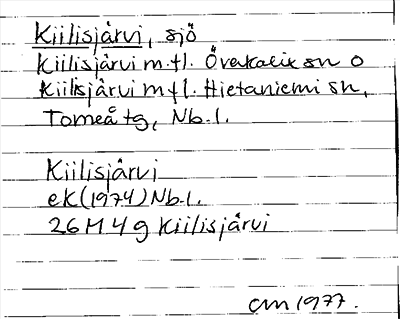 Kiilisjärvi, sjö
Kiilisjärvi m.fl. Överkalix sn o
Kiilisjärvi m.fl. Hietaniemi sn,
Torneå tg, Nb.l.
Kiilisjärvi
ek (1974) Nb.l.
26 M 4 g Kiilisjärvi
am 1977.